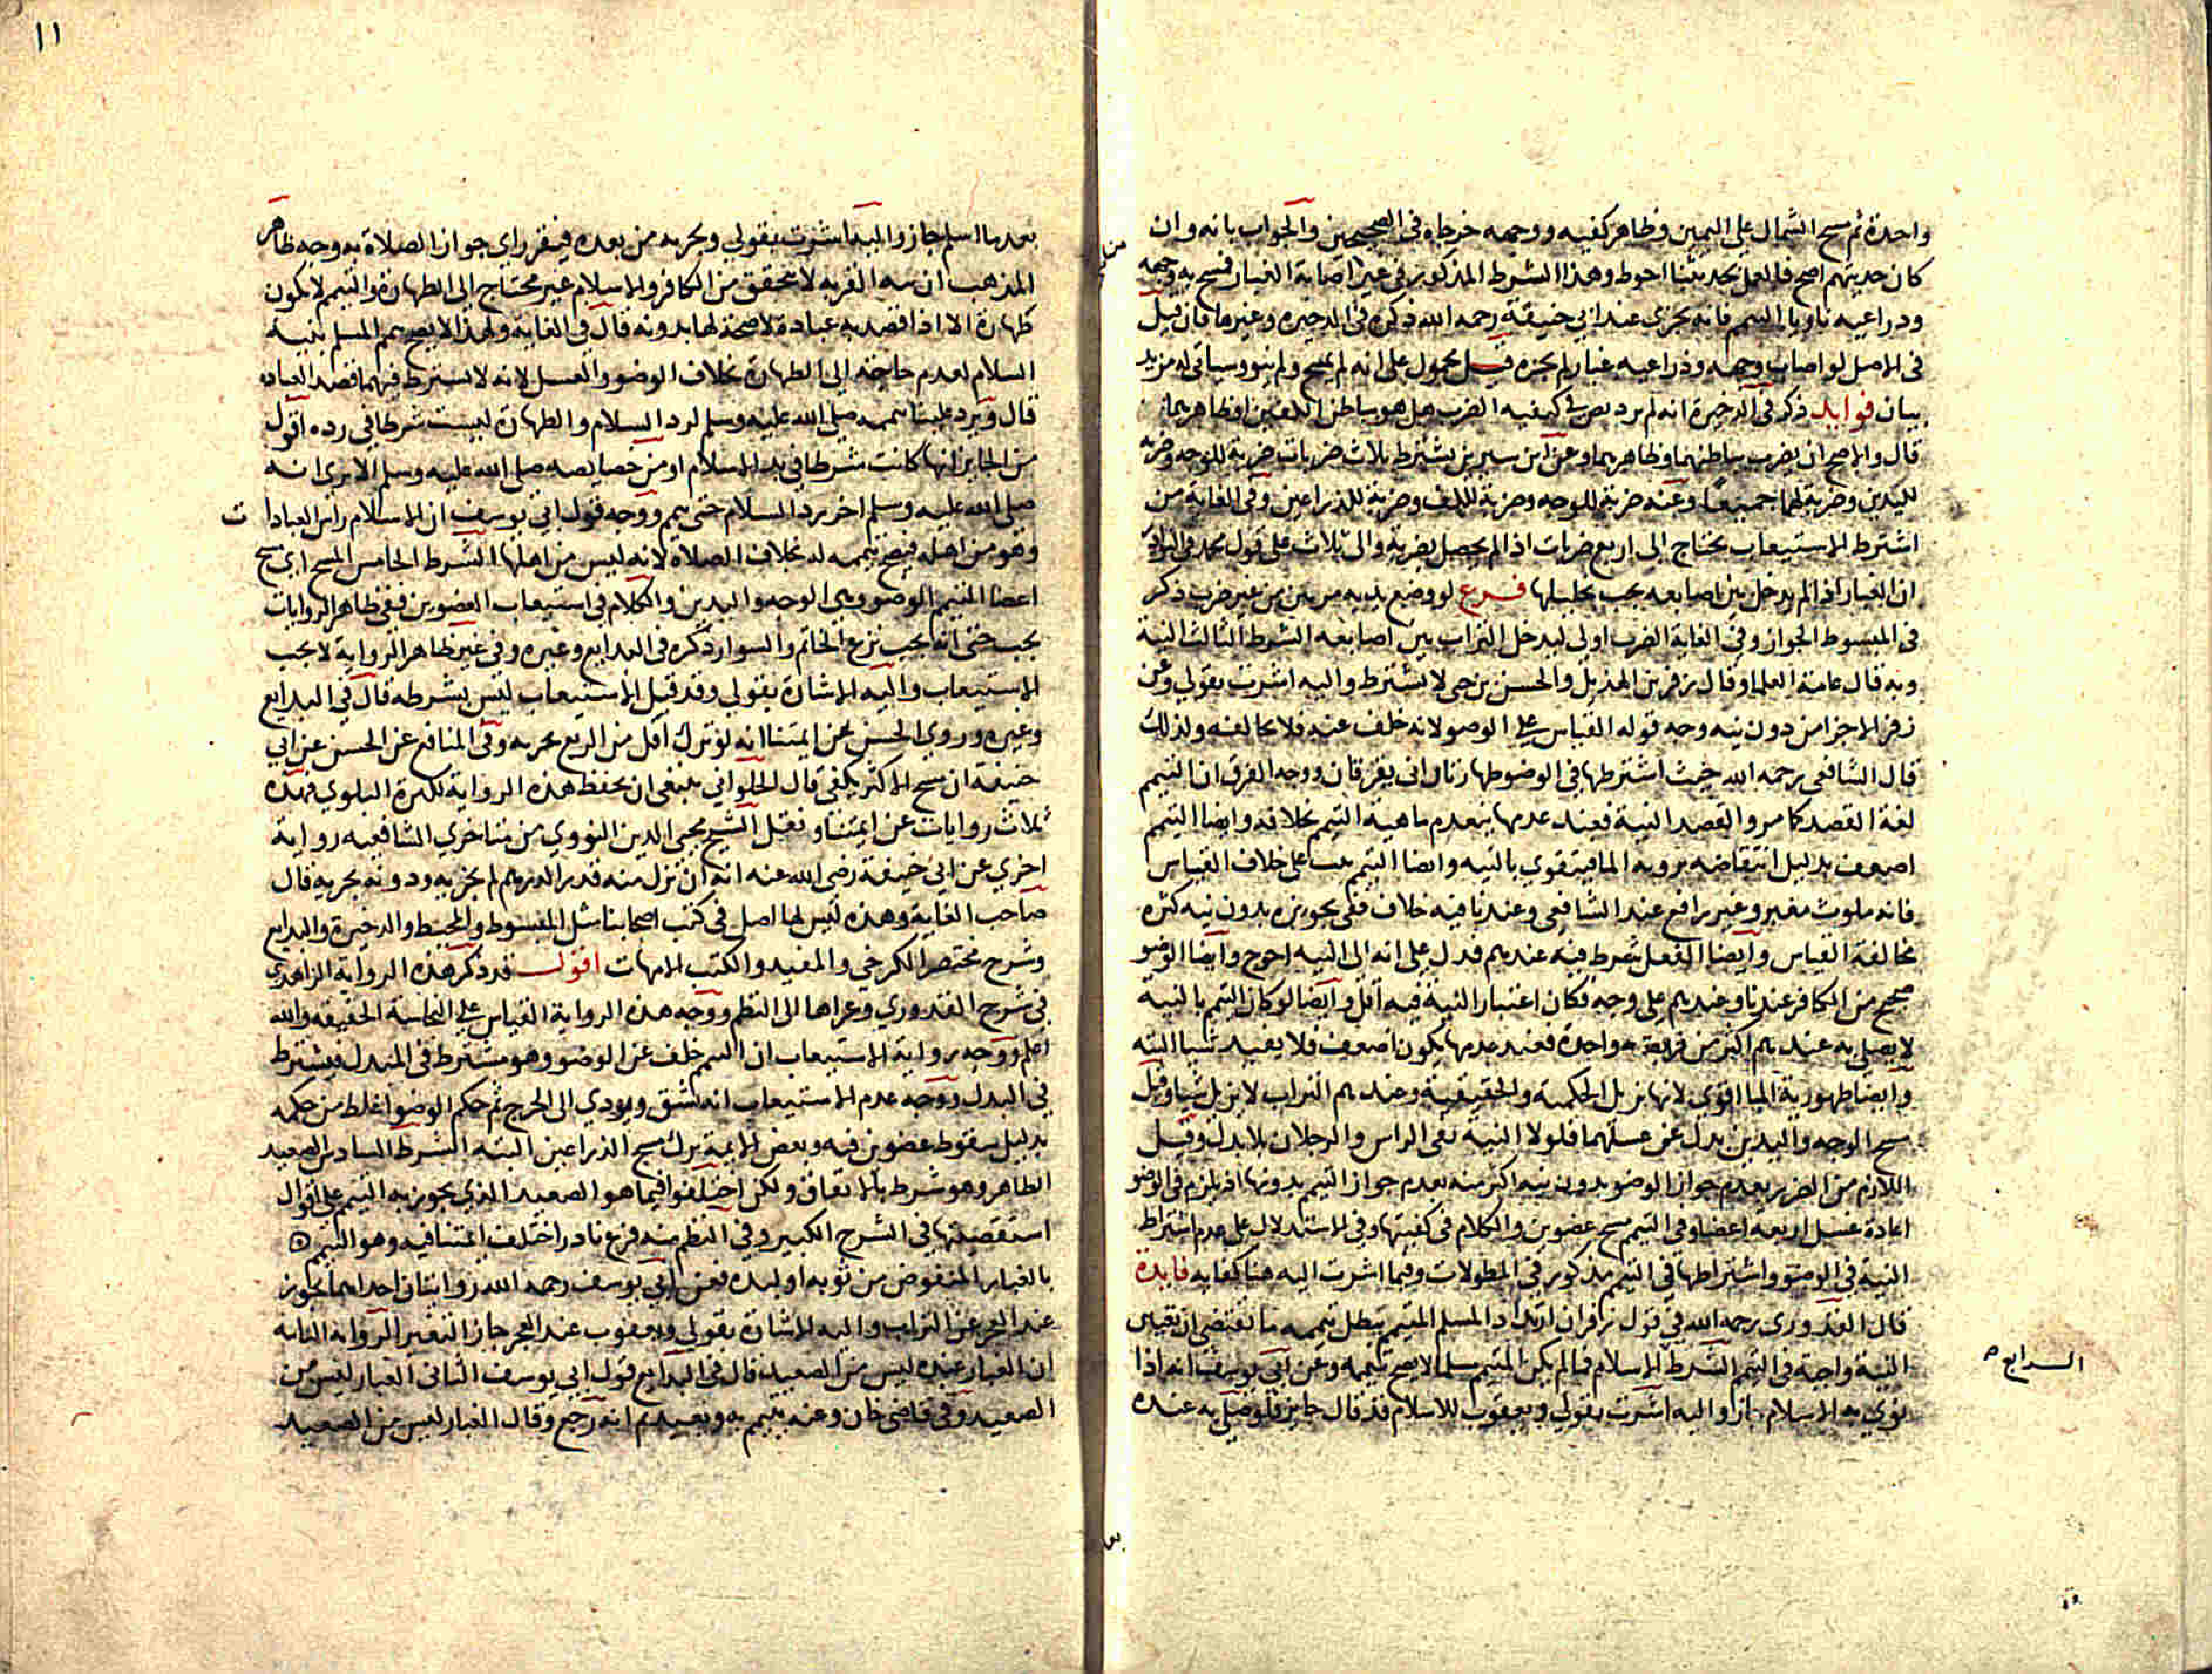 واحدة ثم مسح الشمال علي اليمين وظاهر كفيه ووجهه خرجاه في الصحيحين والجواب بانه وان
كان حديثهم اصح فالعمل بحديثنا احوط وهذا الشرط المذكور في غير اصابة الغبار فمسح به وجهه
وذراعيه ناويا التيمم فانه يجزي عند ابي حنيفة رحمه الله ذكره في الذخيرة وغيرها فان قيل
في الاصل لو اصاب وجهه وذراعيه غبار لم يجزه قيل محمول على انه لم يمسح ولم ينو وسياتي له مزيد
بيان فوايد ذكر في الذخيرة انه لم يرد نص في كيفيه الضرب هل هو بباطن الكفين او ظاهرهما
قال والاصح ان يضرب بباطنهما وظاهرهما وعن ابن سيرين يشترط ثلاث ضربات ضربة للوجه وضربة
لليدين وضربة لهما جميعا وعنه ضربة للوجه وضربة للكف وضربة للذراعين وفي الغاية من
اشترط الاستيعاب يحتاج الى اربع ضربات اذا لم يحصل بضربة والى ثلاث على قول محمد في
ان الغبار اذا لم يدخل بين اصابعه يجب تخليلها فرع لو وضع يديه مرتين من غير ضرب ذكر
في المبسوط الجواز وفي الغاية الضرب اولى ليدخل التراب بين اصابعه الشرط الثالث النية
وبه قال عامة العلما وقال زفر بن الهذيل والحسن بن حي لا تشترط واليه اشرت بقولي وعن
زفر الاجزا من دون نيه وجه قوله القياس على الوضو لانه خلف عنه فلا يخالفه ولذلك
قال الشافعي رحمه الله حيث اشترطها في الوضو طهارتان انى يفرقان ووجه الفرق ان التيمم
لغة القصد كما مر والقصد النية فعند عدمها ينعدم ماهية التيمم بخلافه وايضا التيمم
اضعف بدليل انتقاضه بروية الما فيتقوي بالنيه وايضا التيمم على خلاف القياس
فانه ملوث مغير وغير رافع عند الشافعي وعندنا فيه خلاف ففي تجويزه بدون نيه كثرة
مخالفة القياس وايضا الفعل شرط فيه عندهم فدل على انه الى النيه احوج وايضا الوضو
صحيح من الكافر عندنا وعندهم على وجه فكان اعتبار النية فيه اقل وايضا لو كان التيمم بالنية
لا يصلي به عندهم اكثر من فريضة واحدة فعند عدمها يكون اضعف فلا يفيد شيا البته
وايضا طهورية الما اقوى لانها تزيل الحكمية والحقيقية وعندهم التراب لا يزيل شيا وقيل
مسح الوجه واليدين بدل عن غسلهما فلولا النية بقي الراس والرجلان بلا بدل وقيل
اللازم من الضرر بعدم جواز الوضو بدون نيه اكثر منه بعدم جواز التيمم بدونها اذ يلزم في الوضو
اعادة غسل اربعه اعضا وفي التيمم مسح عضوين والكلام في كفيتها وفي الاستدلال على عدم اشتراط
النية في الوضو واشتراطها في التيمم مذكور في المطولات وفيما اشرت اليه هنا كفايه فايدة
قال القدوري رحمه الله في قول زفر ان ارتداد المسلم المتيمم يبطل تيممه ما يقتضي ان تقيس
النية واجبة في التيمم الشرط الاسلام فما لم يكن المتيمم مسلما لا يصح تيممه وعن ابي يوسف انه اذا
نوى به الاسلام جاز واليه اشرت بقولي ويعقوب للاسلام قد قال جايز فلو صلى به عنده
الرابع صح
١١
بعدها اسلم جاز واليه اشرت بقولي ويجزيه من بعده فيقرراي جواز الصلاة به وجه ظاهر
المذهب ان نية القربة لا تتحقق من الكافر والاسلام غير محتاج الى الطهارة والتيمم لا يكون
طهارة الا اذا قصد به عبادة لا صحة لها بدونه قال في الغاية ولهذا لا يصح تيمم المسلم بنية
السلام لعدم حاجته الى الطهارة بخلاف الوضو والغسل لانه لا يشترط فيهما قصد العباده
قال ويرد علينا تيممه صلى الله عليه وسلم لرد السلام والطهارة ليست شرطا في رده اقول
من الجايز انها كانت شرطا في بدا الاسلام او من خصايصه صلى الله عليه وسلم الا يرى انه
صلى الله عليه وسلم اخر رد السلام حتى تيمم ووجه قول ابي يوسف ان الاسلام راس العبادات
وهو من اهله فيصح تيممه له بخلاف الصلاة لانه ليس من اهلها الشرط الخامس المسح اي مسح
اعضا المتيمم الوضو وهي الوجه واليدين والكلام في استيعاب العضوين ففي ظاهر الروايات
يجب حتى انه يجب نزع الخاتم والسوار ذكره في البدايع وغيره وفي غير ظاهر الرواية لا يجب
الاستيعاب واليه الاشارة بقولي وقد قيل الاستيعاب ليس بشرطه قال في البدايع
وغيره وروي الحسن عن ايمتنا انه لو ترك اقل من الربع يجزيه وفي المنافع عن الحسن عن ابي
حنيفة ان مسح الاكثر يكفي قال الحلواني ينبغي ان يحفظ هذه الرواية لكثرة البلوي فهذه
ثلاث روايات عن ايمتنا ونقل الشيخ محيي الدين النووي من متاخري الشافعيه رواية
اخري عن ابي حنيفة رضي الله عنه انه ان ترك منه قدر الدرهم لم يجزيه ودونه يجزيه قال
صاحب الغاية وهذه ليس لها اصل في كتب اصحابنا مثل المبسوط والمحيط والذخيرة والبدايع
وشرح مختصر الكرخي والمفيد والكتب الامهات اقول قد ذكر هذه الرواية الزاهدي
في شرح القدوري وعزاها الى النظم ووجه هذه الرواية القياس على النجاسة الحقيقه والله
اعلم ووجه رواية الاستيعاب ان التيمم خلف عن الوضو وهو مشترط في المبدل فيشترط
في البدل ووجه عدم الاستيعاب انه مشق ويودي الى الحرج ثم حكم الوضو اغلظ من حكمه
بدليل سقوط عضوين فيه وبعض الايمة يرك مسح الذراعين البته الشرط السادس الصعيد
الطاهر وهو شرط بالاتفاق ولكن اختلفوا فيما هو الصعيد الذي يجوز به التيمم على اقوال
استقصيتها في الشرح الكبير وفي النظم منه فرع نادر اختلف ايمتنا فيه وهو التيمم
بالغبار المنفوض من ثوبه او لبده فعن ابي يوسف رحمه الله روايتان احداهما يجوز
عند العجز عن التراب واليه الاشارة بقولي ويعقوب عند العجز جاز التغبير الرواية الثانية
ان الغبار عنده ليس من الصعيد قال في البدايع قول ابي يوسف الثاني الغبار ليس من
الصعيد وفي قاضي خان وعنه يتيمم به ويعيد ثم انه رجع وقال الغبار ليس من الصعيد